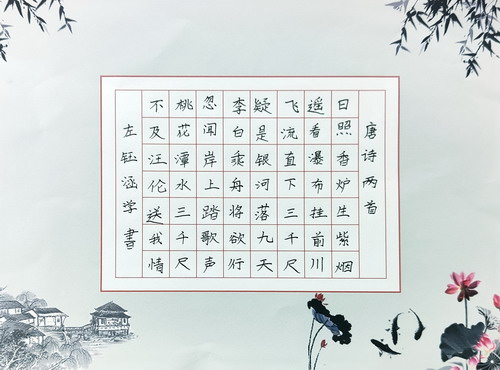 唐诗两首
日照香炉生紫烟
遥看瀑布挂前川
飞流直下三千尺
疑是银河落九天
李白乘舟将欲行
忽闻岸上踏歌声
桃花潭水三千尺
不及汪伦送我情
左钰涵学書